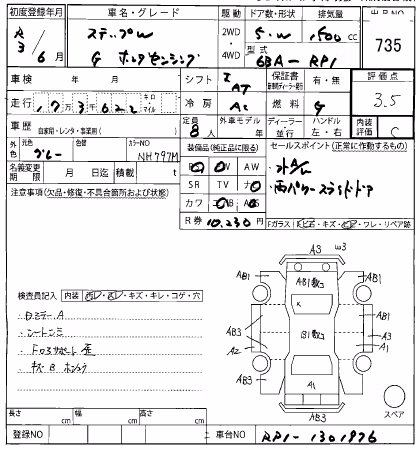 初度登録年月 車名・グレード 駆動 ドア数・形状 排気量 出品NO
R3年 6月 ステップW G ホンダセンシング 2WD・4WD 5.W 1500cc 735
型式 6BA-RP1
車検 年 月 シフト I AT 保証書 有・無 評価点 3.5
走行 173622 キロ マイル 冷房 AC 燃料 G
車歴 自家用・レンタ・事業用( ) 定員 8人 外車モデル 年 ディーラー・並行 ハンドル 左・右 内装評価 C
外色 元色 グレー 色替 カラーNO NH797M
装備品(純正品に限る) セールスポイント(正常に動作するもの)
名義変更期限 月 日迄 積載 t
SR TV ナビ
注意事項(欠品・修復・不具合箇所および状態)
カワ AB ABS
R券 10,230円
両パワースライドドア
Fガラス
ワレ・リペア跡
A3 W3
AB1 AB1 AB1
検査員記入 内装 キズ・キレ・コゲ・穴
AB3 B1 AB1 A3
A2 A1
AB3 AB3
A1
AB3
スペア
長さ cm 幅 cm 高さ cm
登録NO 車台NO RP1-1301976